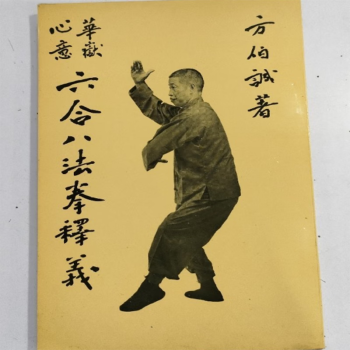 方伯誠著
華嶽
心意
六合八法拳釋義